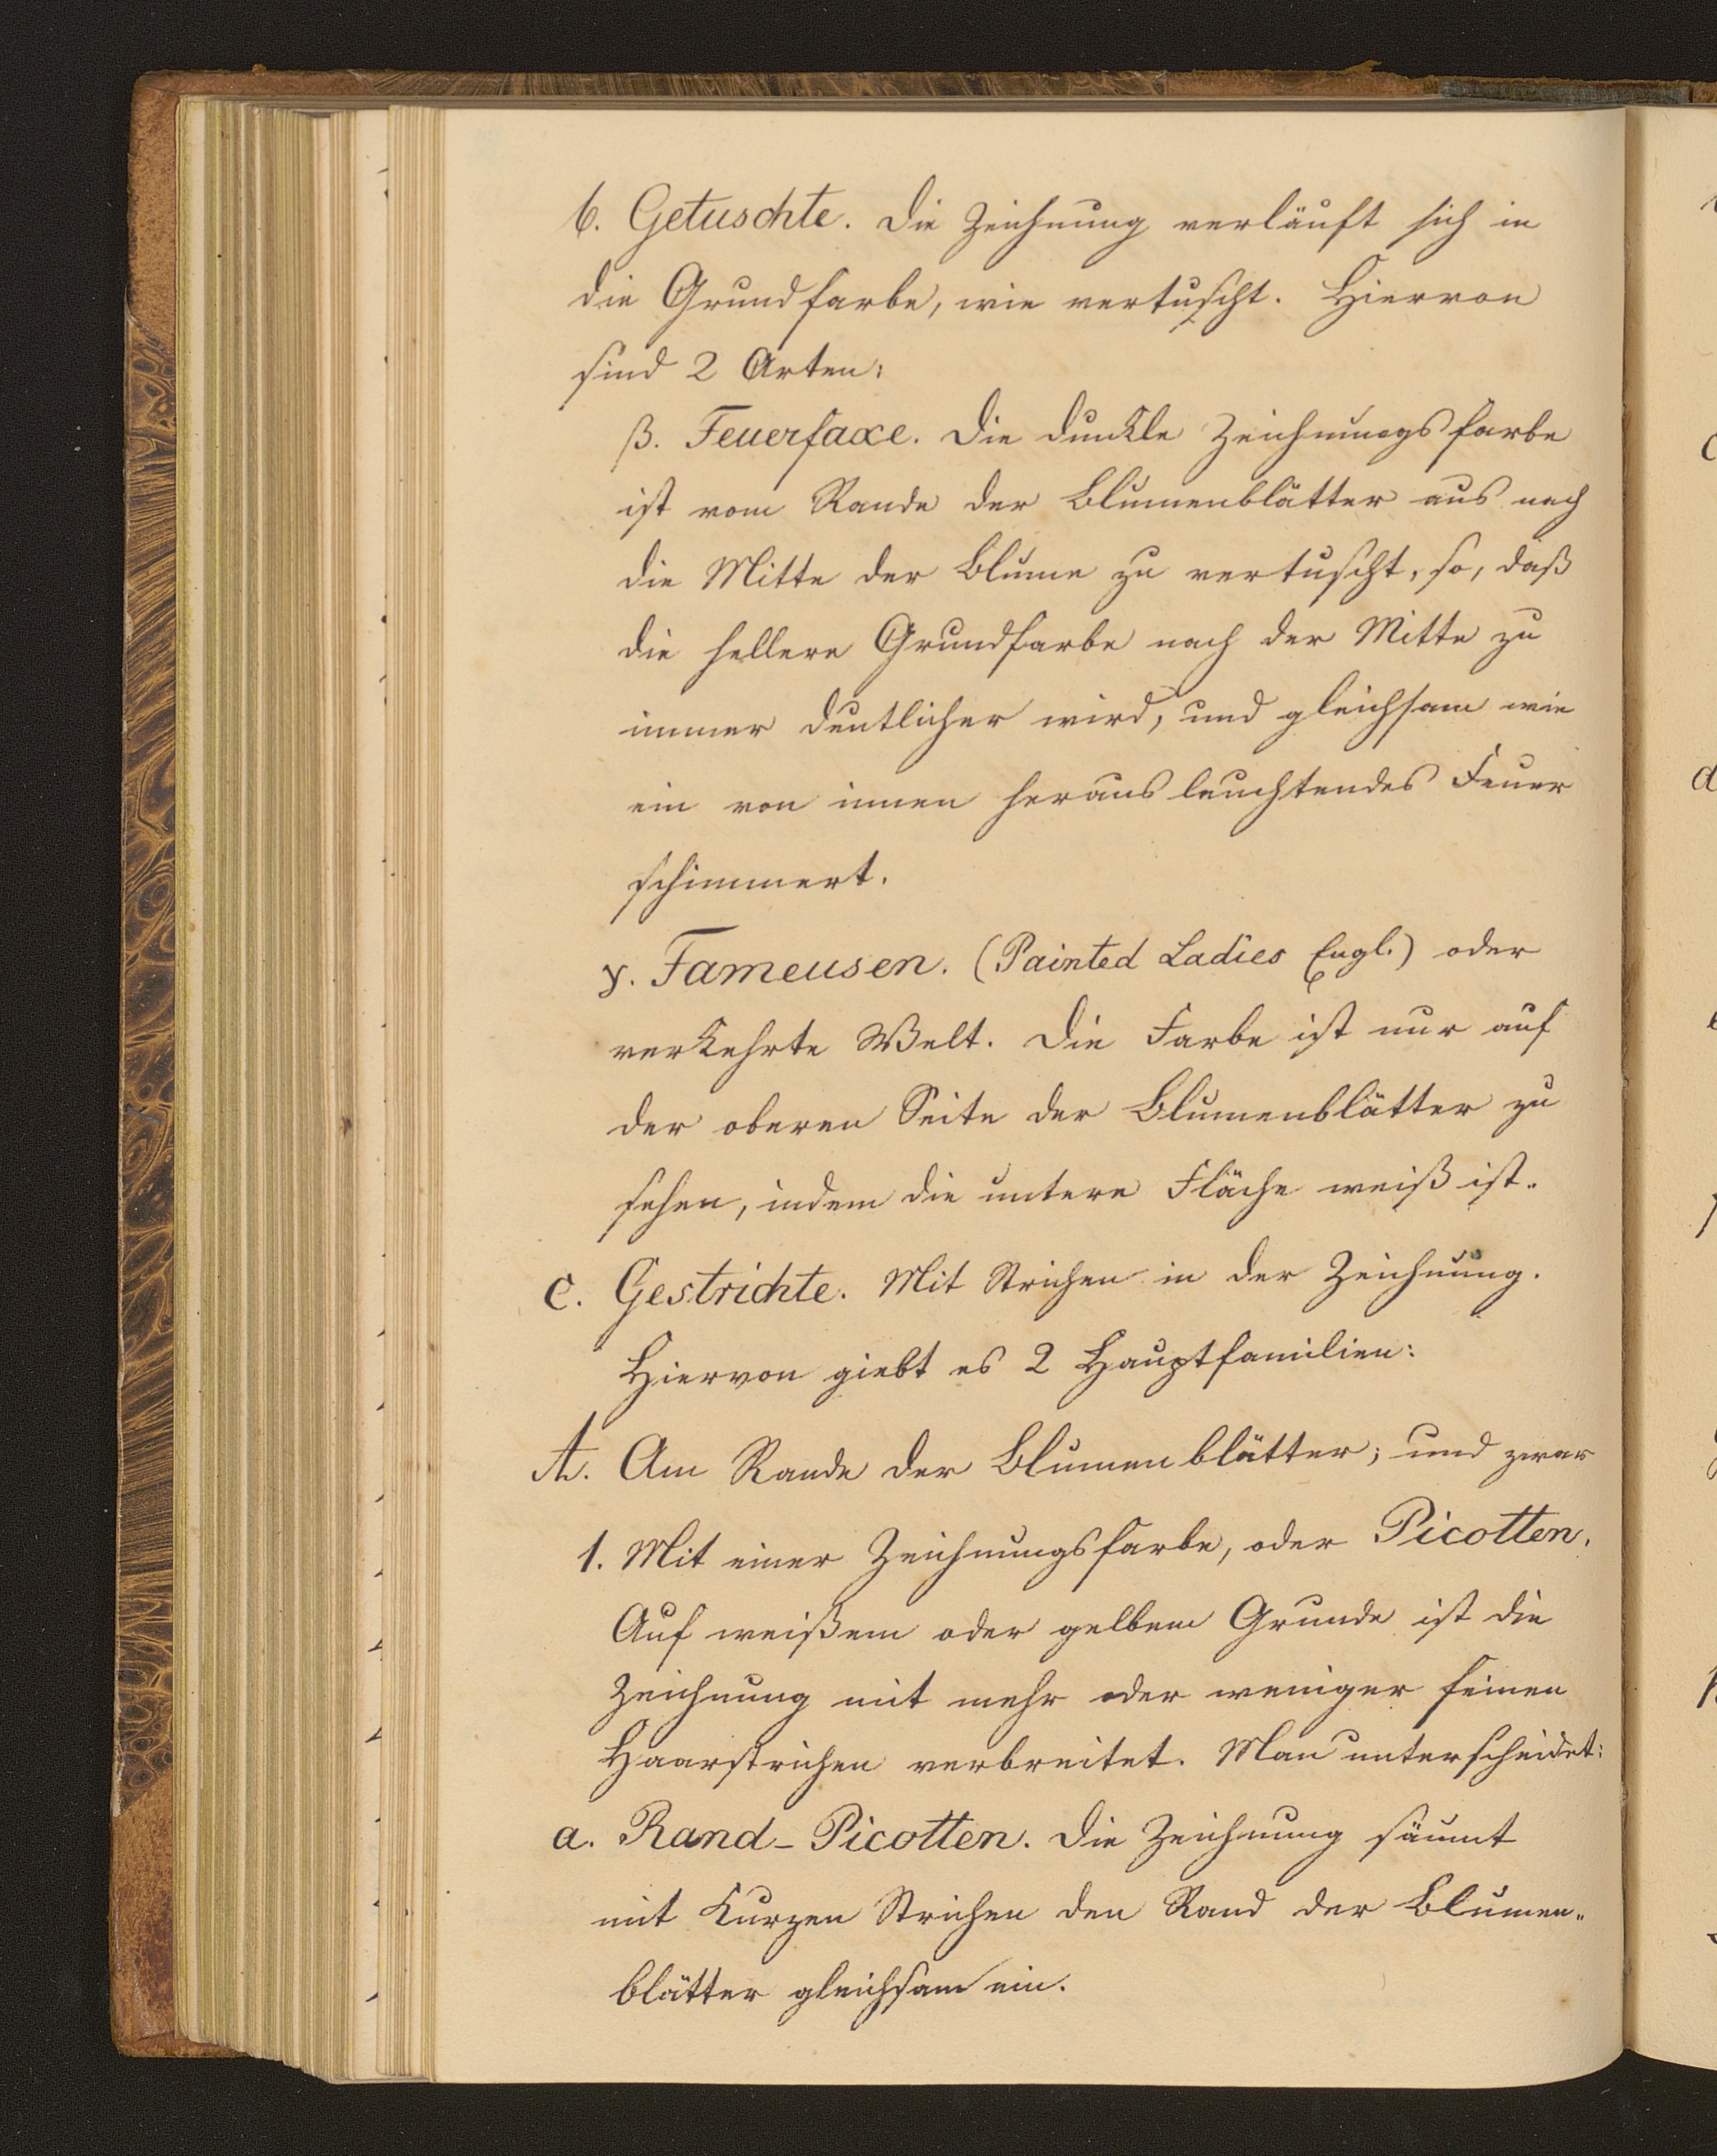 b. Getuschte. Die Zeichnung verläuft sich in
die Grundfarbe, wie vertuscht. Hiervon
sind 2 Arten:
β. Feuerfaxe. Die dunkle Zeichnungsfarbe
ist vom Rande der Blumenblätter aus nach
die Mitte der Blume zu vertuscht, so, daß
die hellere Grundfarbe nach der Mitte zu
immer deutlicher wird, und gleichsam wie
ein von innen heraus leuchtendes Feuer
schimmert.
γ. Fameusen. (Painted Ladies Engl.) oder
verkehrte Welt. Die Farbe ist nur auf
der oberen Seite der Blumenblätter zu
sehen, indem die untere Fläche weiß ist.
c. Gestrichte. Mit Strichen in der Zeichnung.
Hiervon giebt es 2 Hauptfamilien:
A. Am Rande der Blumenblätter; und zwar
1. Mit einer Zeichnungsfarbe, oder Picotten.
Auf weißem oder gelbem Grunde ist die
Zeichnung mit mehr oder weniger feinen
Haarstrichen verbreitet. Man unterscheidet:
a. Rand-Picotten. Die Zeichnung säumt
mit kurzen Strichen den Rand der Blumen-
blätter gleichsam ein.